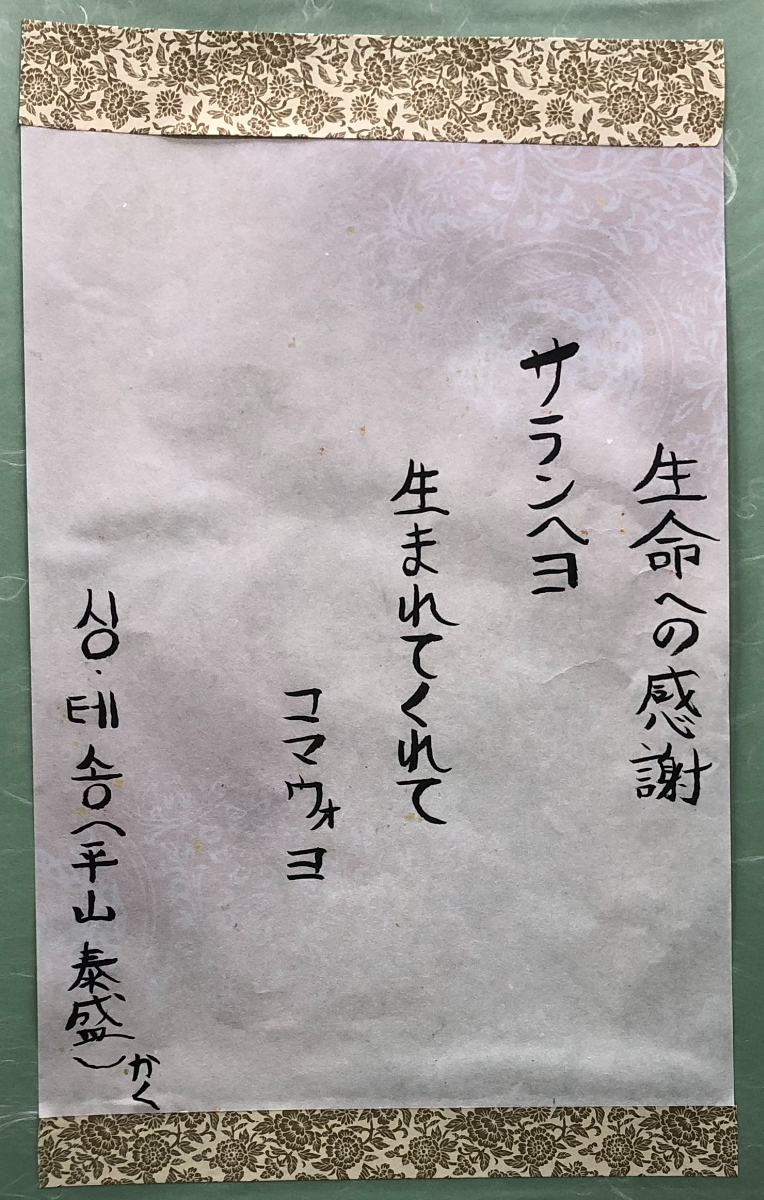 生命への感謝
サランヘヨ
生まれてくれて
コマウォヨ
싱・테송(平山泰盛)かく